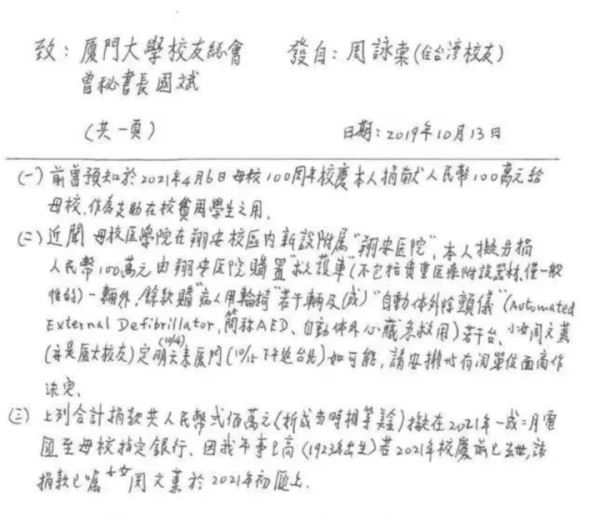 致：廈門大學校友總會 發自：周詠棠(住台灣校友)
曾秘書長國斌
(共一頁) 日期：2019年10月13日
(一)前曾預知於2021年4月6日母校100周年校慶本人捐獻人民幣100萬元給
母校，作為支助在校貧困學生之用。
(二)近聞 母校医學院在翔安校區內新設附屬“翔安医院”，本人擬另捐
人民幣100萬元由翔安医院購置“救護車”(不包括貴重医療附設器材，僅一般
性的)一輛外，餘款購“病人用輪椅”若干輛及(或)“自動体外除顫儀”(Automated
External Defibrillator，簡称AED、自動体外心臟急救用)若干台。小女周文薰
(亦是廈大校友)定明天(10/14)來廈門(10/15下午返台北)如可能，請安排与有関單位面商作
決定。
(三)上列合計捐款共人民幣弍佰萬元(折成當時相等美金)擬在2021年一或二月電
匯至母校指定銀行。因我年事已高(1923年出生)若2021年校慶前已去世，該
捐款已囑小女周文薰於2021年初匯上。